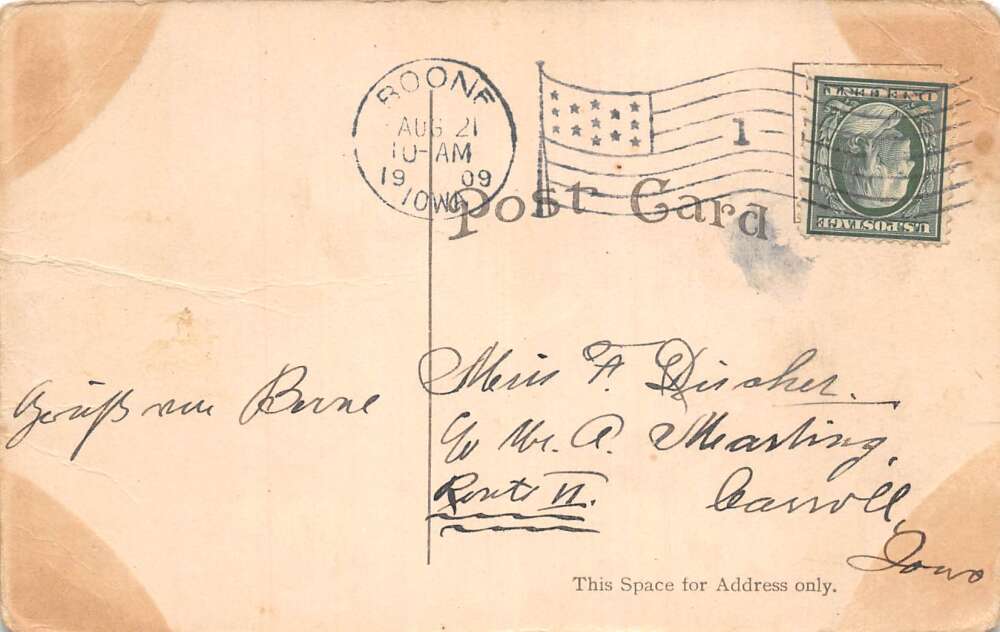 BOONE
AUG 21
10-AM
1909
IOWA
1
U.S. POSTAGE
Post Card
Gruß von Borne
Miss F. Discher.
c/o Mr. A. Marsling,
Route II.
Carroll,
Iowa
This Space for Address only.